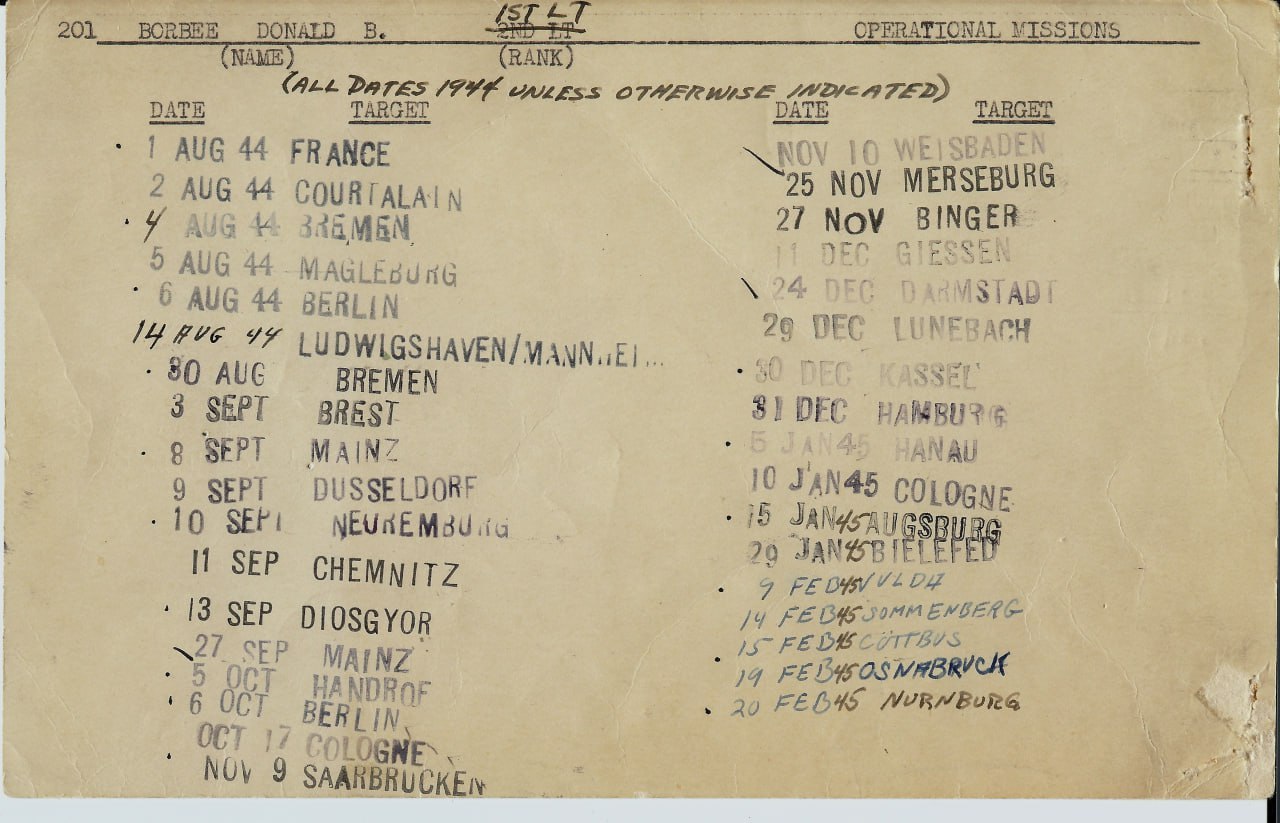 1ST LT
201 BORBEE DONALD B. 2ND LT OPERATIONAL MISSIONS
(NAME) (RANK)
(ALL DATES 1944 UNLESS OTHERWISE INDICATED)
DATE TARGET
1 AUG 44 FRANCE
2 AUG 44 COURTALAIN
4 AUG 44 BREMEN
5 AUG 44 MAGLEBURG
6 AUG 44 BERLIN
14 AUG 44 LUDWIGSHAVEN/MANNHEI...
30 AUG BREMEN
3 SEPT BREST
8 SEPT MAINZ
9 SEPT DUSSELDORF
10 SEPT NEUREMBURG
11 SEP CHEMNITZ
13 SEP DIOSGYOR
27 SEP MAINZ
5 OCT HANDROF
6 OCT BERLIN
OCT 17 COLOGNE
NOV 9 SAARBRUCKEN
DATE TARGET
NOV 10 WEISBADEN
25 NOV MERSEBURG
27 NOV BINGER
11 DEC GIESSEN
24 DEC DARMSTADT
29 DEC LUNEBACH
30 DEC KASSEL
31 DEC HAMBURG
5 JAN45 HANAU
10 JAN45 COLOGNE
15 JAN45 AUGSBURG
29 JAN45 BIELEFED
9 FEB45 VULDA
14 FEB45 SOMMENBERG
15 FEB45 COTTBUS
19 FEB45 OSNABRUCK
20 FEB45 NURNBURG